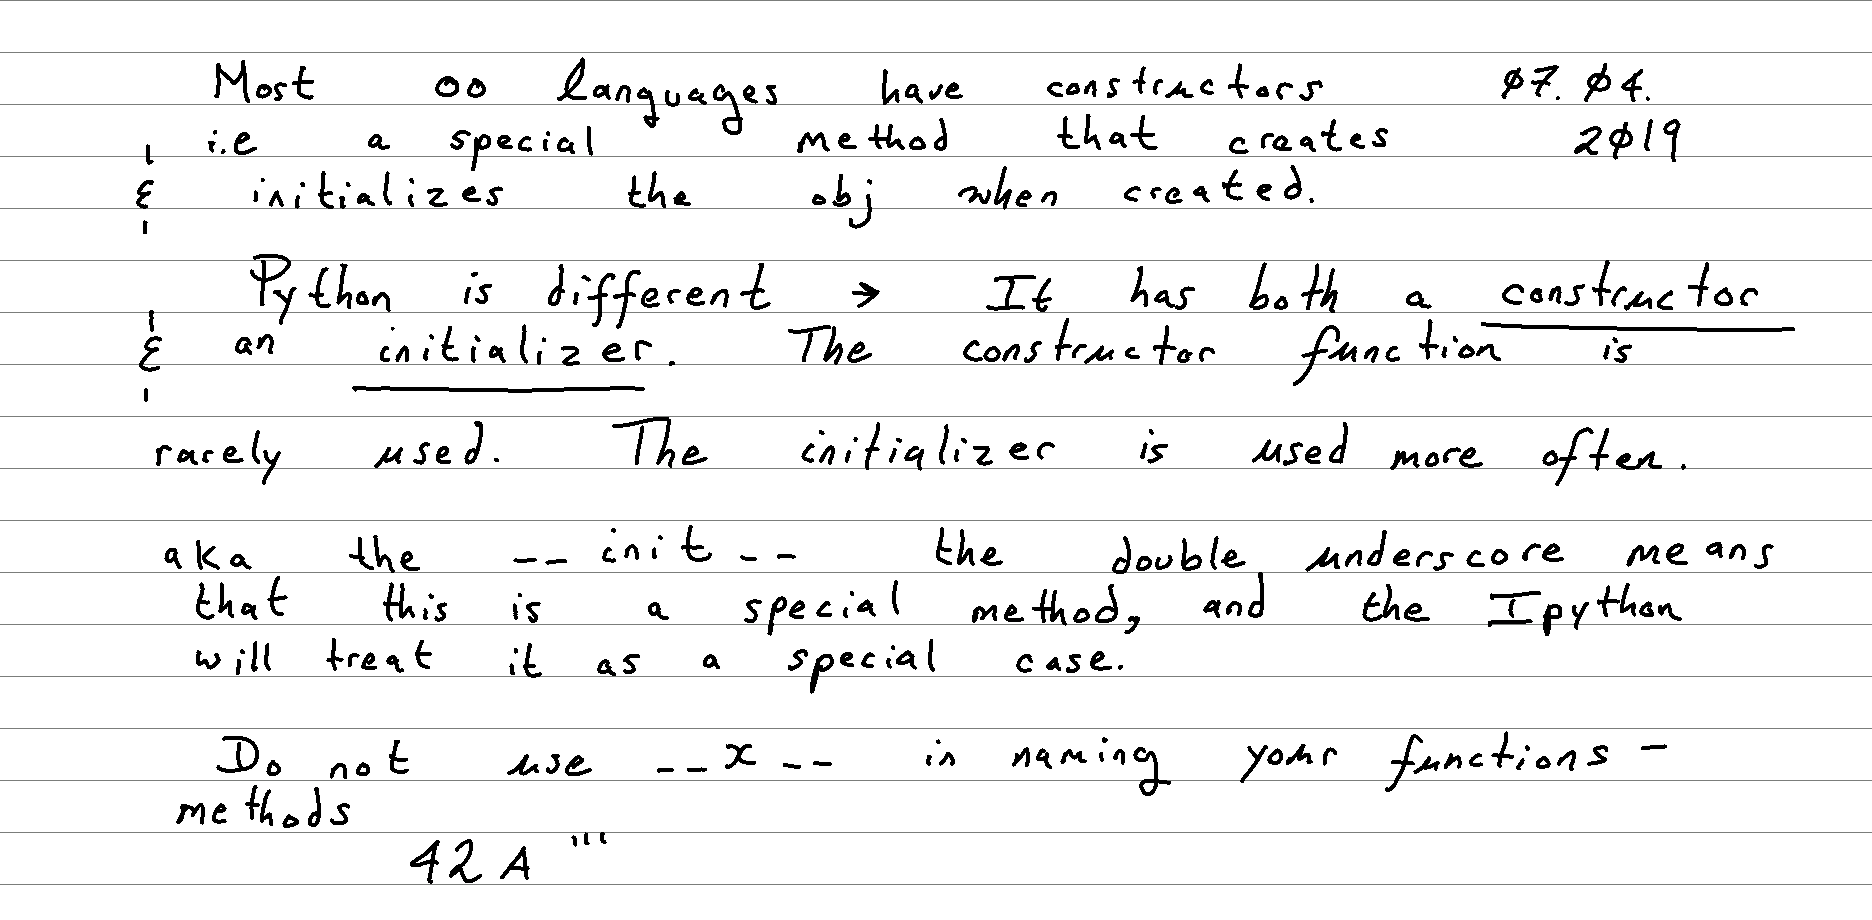 Most OO languages have constructors 07.04.
i.e a special method that creates 2019
& initializes the obj when created.
Python is different → It has both a constructor
& an initializer. The constructor function is
rarely used. The initializer is used more often.
aka the __init__ the double underscore means
that this is a special method, and the Ipython
will treat it as a special case.
Do not use __x__ in naming your functions -
methods
42A '''